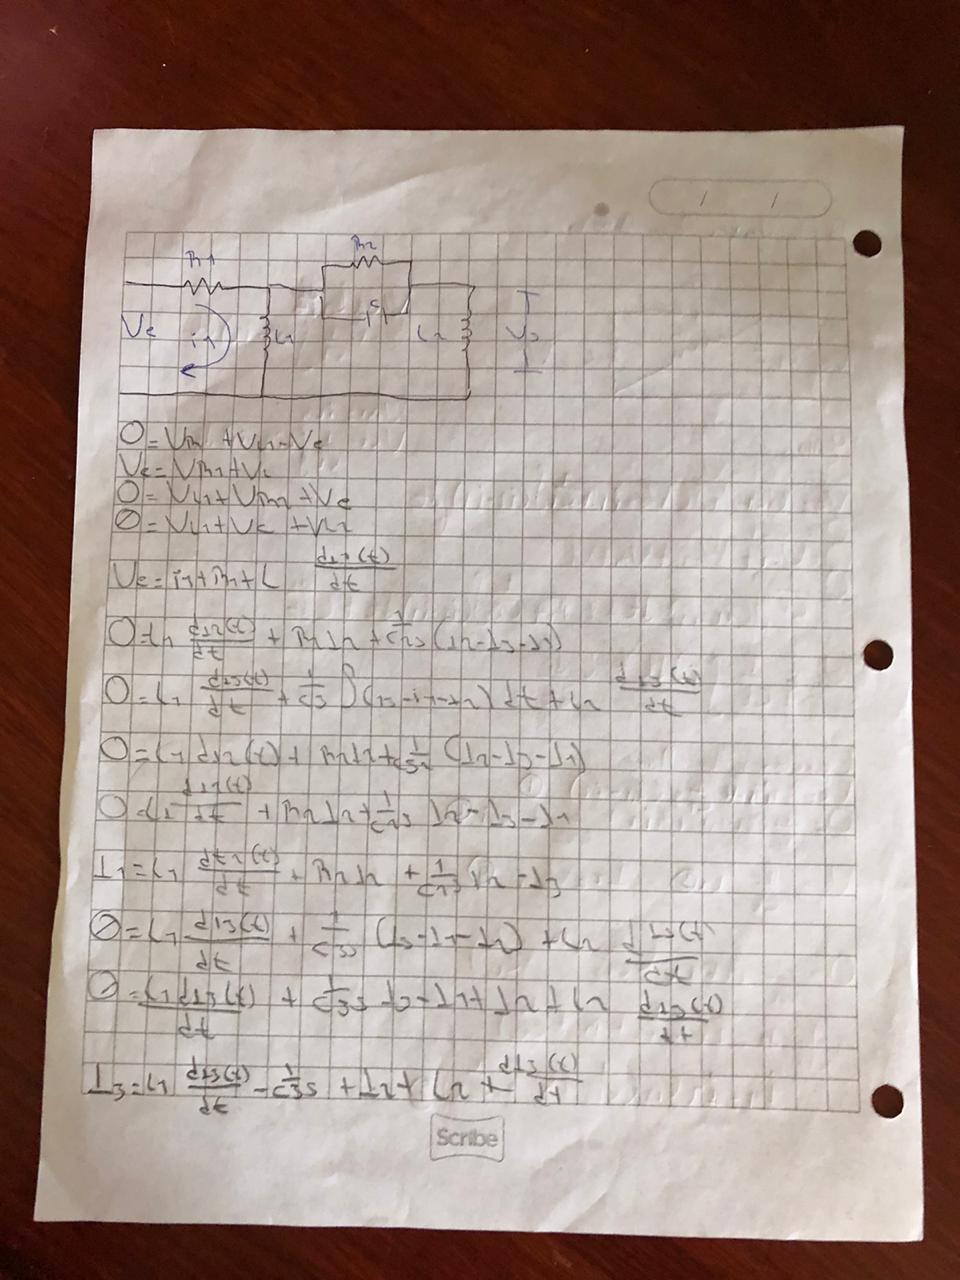 / /
R1
R2
C
Ve
i1
L1
L2
Vs
0 = VR1 + VL1 - Ve
Ve = VR1 + VL
0 = VL1 + VR2 + Vc
0 = VL1 + Vc + VL2
Ve = i1 + R1 + L di1(t)/dt
0 = L1 dI2(t)/dt + R2I2 + 1/C2s (I2-I3-I1)
0 = L1 dI3(t)/dt + 1/C3 ∫(I3-i1-I2) dt + L2 dI3(t)/dt
0 = L1 dI2(t) + R2I2 + (I2-I3-I1)
+ R2I2 + 1/C2s I2-I3-I1
I1 = L1 + R2I2 + I2-I3
0 = L1 dI3(t)/dt + 1/C3s (I3-I1-I2) + L2 dI3(t)/dt
0 = L1 dI3(t)/dt + 1/C3s I3-I1+I2+L2 dI3(t)/dt
I3 = L1 dI3(t)/dt - 1/C3s + I2 + L2 + dI3(t)/dt
Scribe